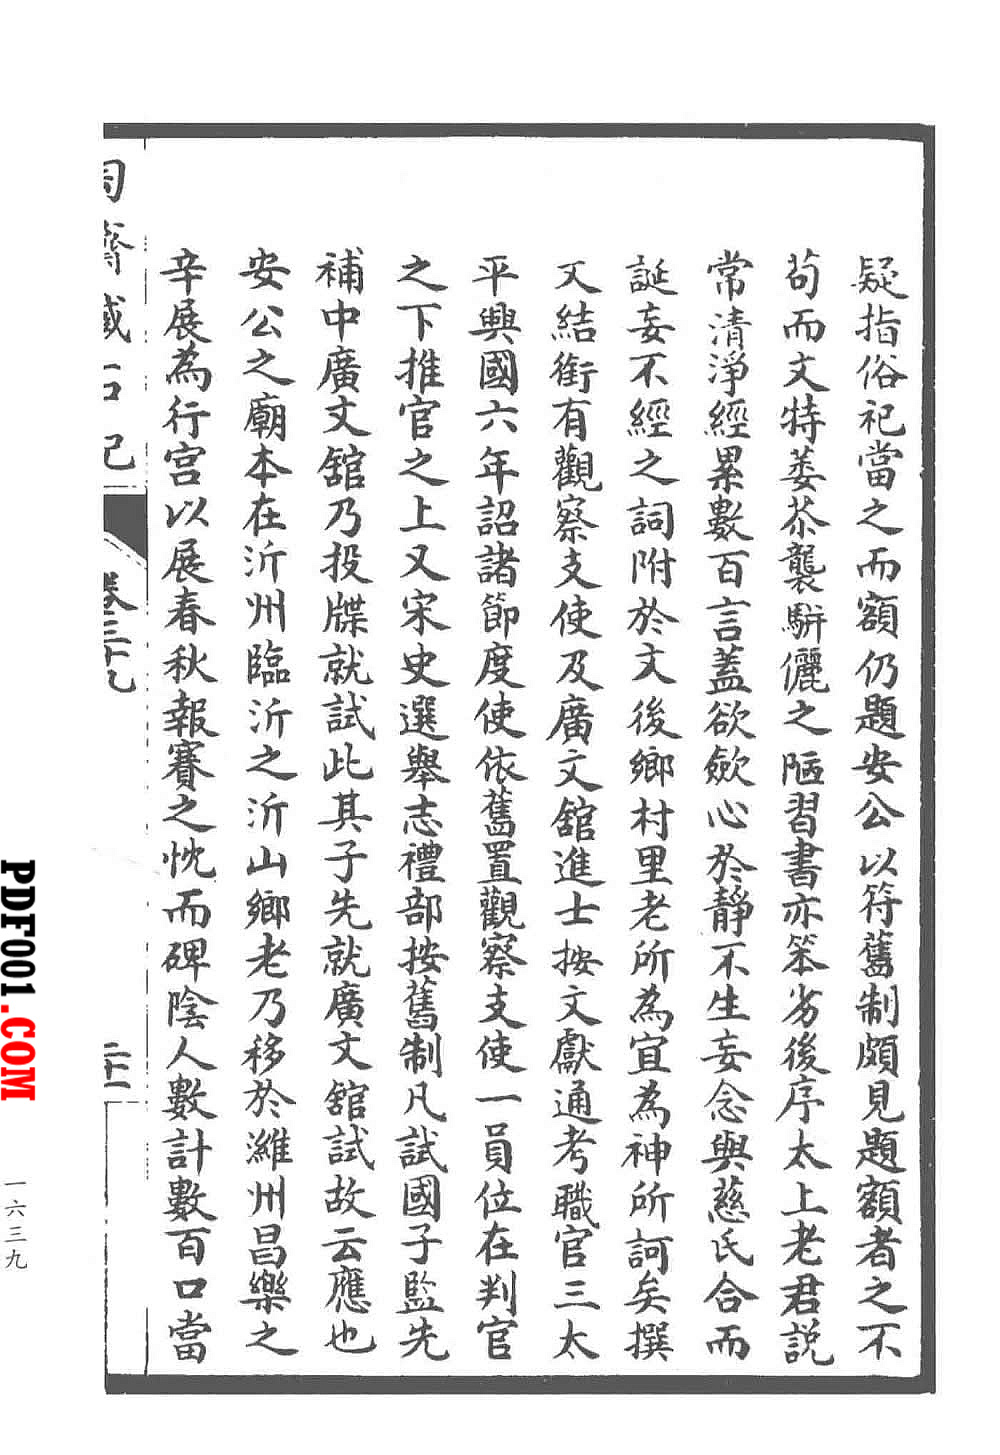 疑指俗祀當之而額仍題安公以符舊制頗見題額者之不
苟而文特萎苶襲駢儷之陋習書亦笨劣後序太上老君説
常清淨經累數百言蓋欲歛心於靜不生妄念與慈氏合而
誕妄不經之詞附於文後鄉村里老所為宜為神所訶矣撰
文結銜有觀察支使及廣文舘進士按文獻通考職官三太
平興國六年詔諸節度使依舊置觀察支使一員位在判官
之下推官之上又宋史選舉志禮部按舊制凡試國子監先
補中廣文舘乃投牒就試此其子先就廣文舘試故云應也
安公之廟本在沂州臨沂之沂山鄉老乃移於濰州昌樂之
辛展為行宫以展春秋報賽之忱而碑陰人數計數百口當
匋齋臧石記
卷三十九
二十一
一六三九
PDF001.COM